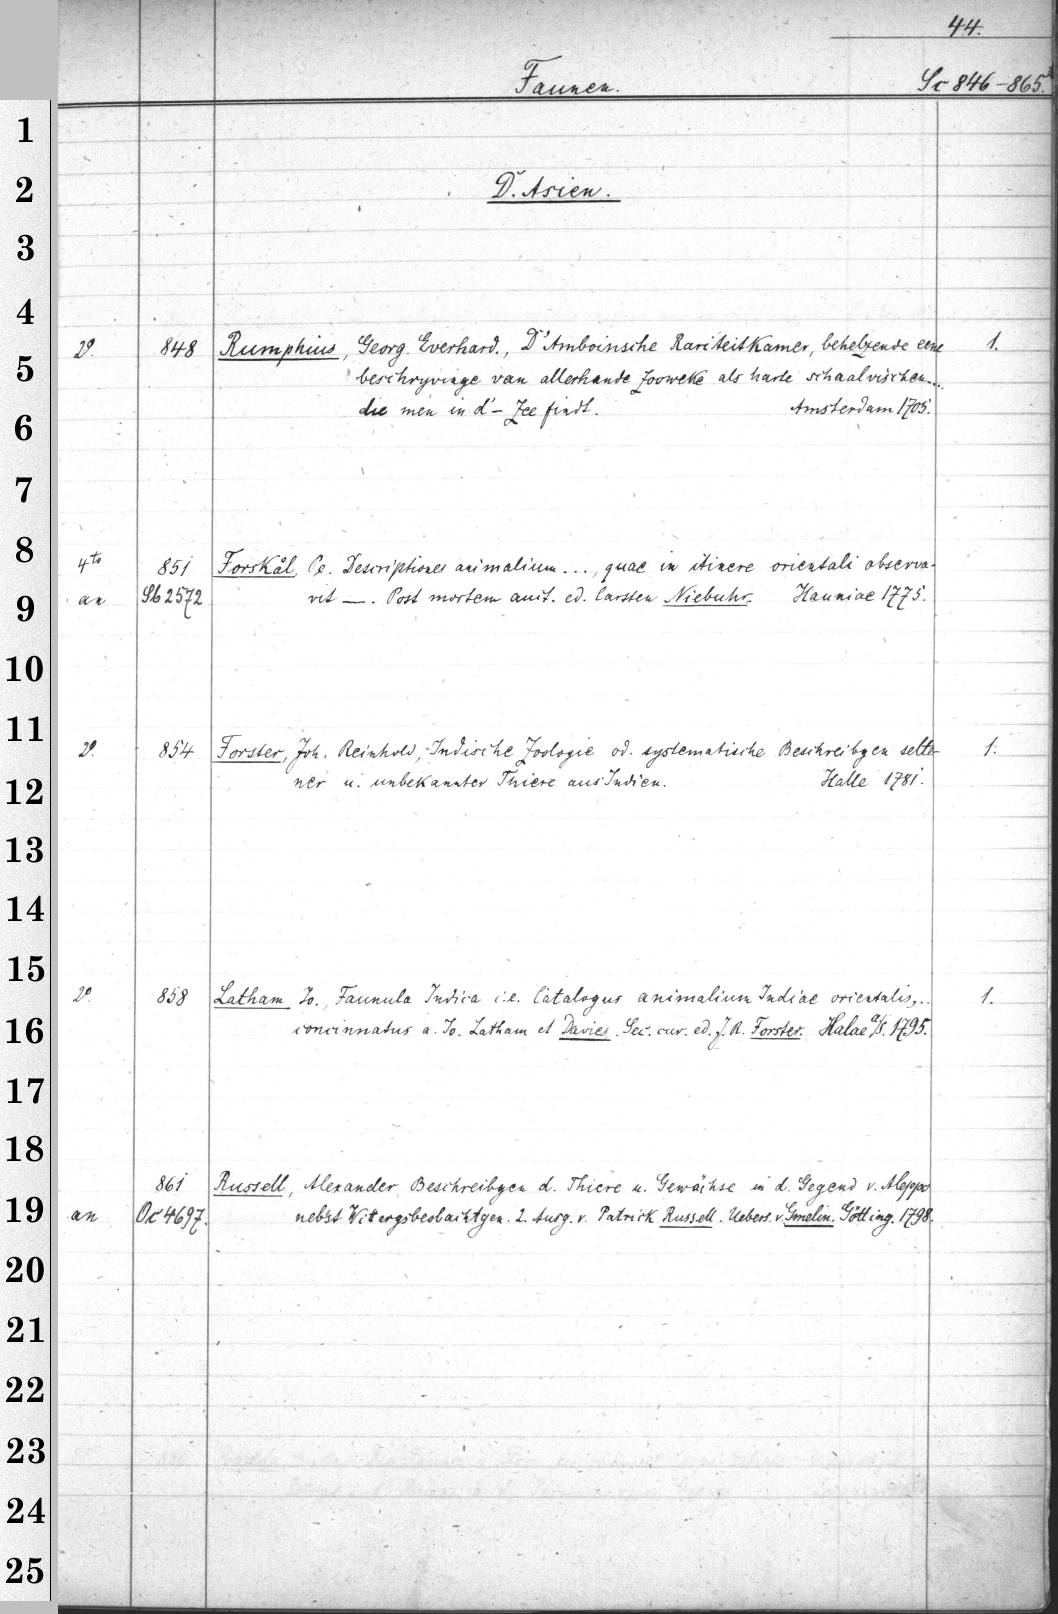 44.
Faunen. Sc 846-865.
1
2 D. Asien.
3
4
2º. 848 Rumphius, Georg. Everhard., D'Amboinsche Rariteitkamer, behelzende eene 1.
5 beschryvinge van allerhande zooweke als harte schaalvischen...
6 die men in d'- Zee findt. Amsterdam 1705.
7
8 4to 851 Forskål, Pe. Descriptiones animalium ..., quae in itinere orientali observa-
9 an Sb 2572 vit —. Post mortem auct. ed. Carsten Niebuhr. Hauniae 1775.
10
11 2º. 854 Forster, Joh. Reinhold, Indische Zoologie od. systematische Beschreibgen selte- 1.
12 ner u. unbekannter Thiere aus Indien. Halle 1781.
13
14
15 2º. 858 Latham, Jo., Faunula Indica i.e. Catalogus animalium Indiae orientalis,.. 1.
16 concinnatus a. Jo. Latham et Davies. Sec. cur. ed. J. R. Forster. Halae a/S. 1795.
17
18
861 Russell, Alexander, Beschreibgen d. Thiere u. Gewächse in d. Gegend v. Aleppo
19 an Oc 4697. nebst Witergsbeobachtgen. 2. Ausg. v. Patrick Russell. Uebers. v. Gmelin. Götting. 1798.
20
21
22
23
24
25